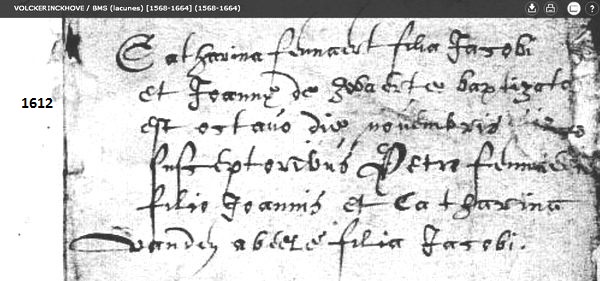 VOLCKERINCKHOVE / BMS (lacunes) [1568-1664] (1568-1664)
1612
Catharina fennaert filia Jacobi
et Joannę de zwarte baptizata
est octavo die novembris
susceptoribus Petro fennaert
filio Joannis et Catharina
vanden abeele filia Jacobi.